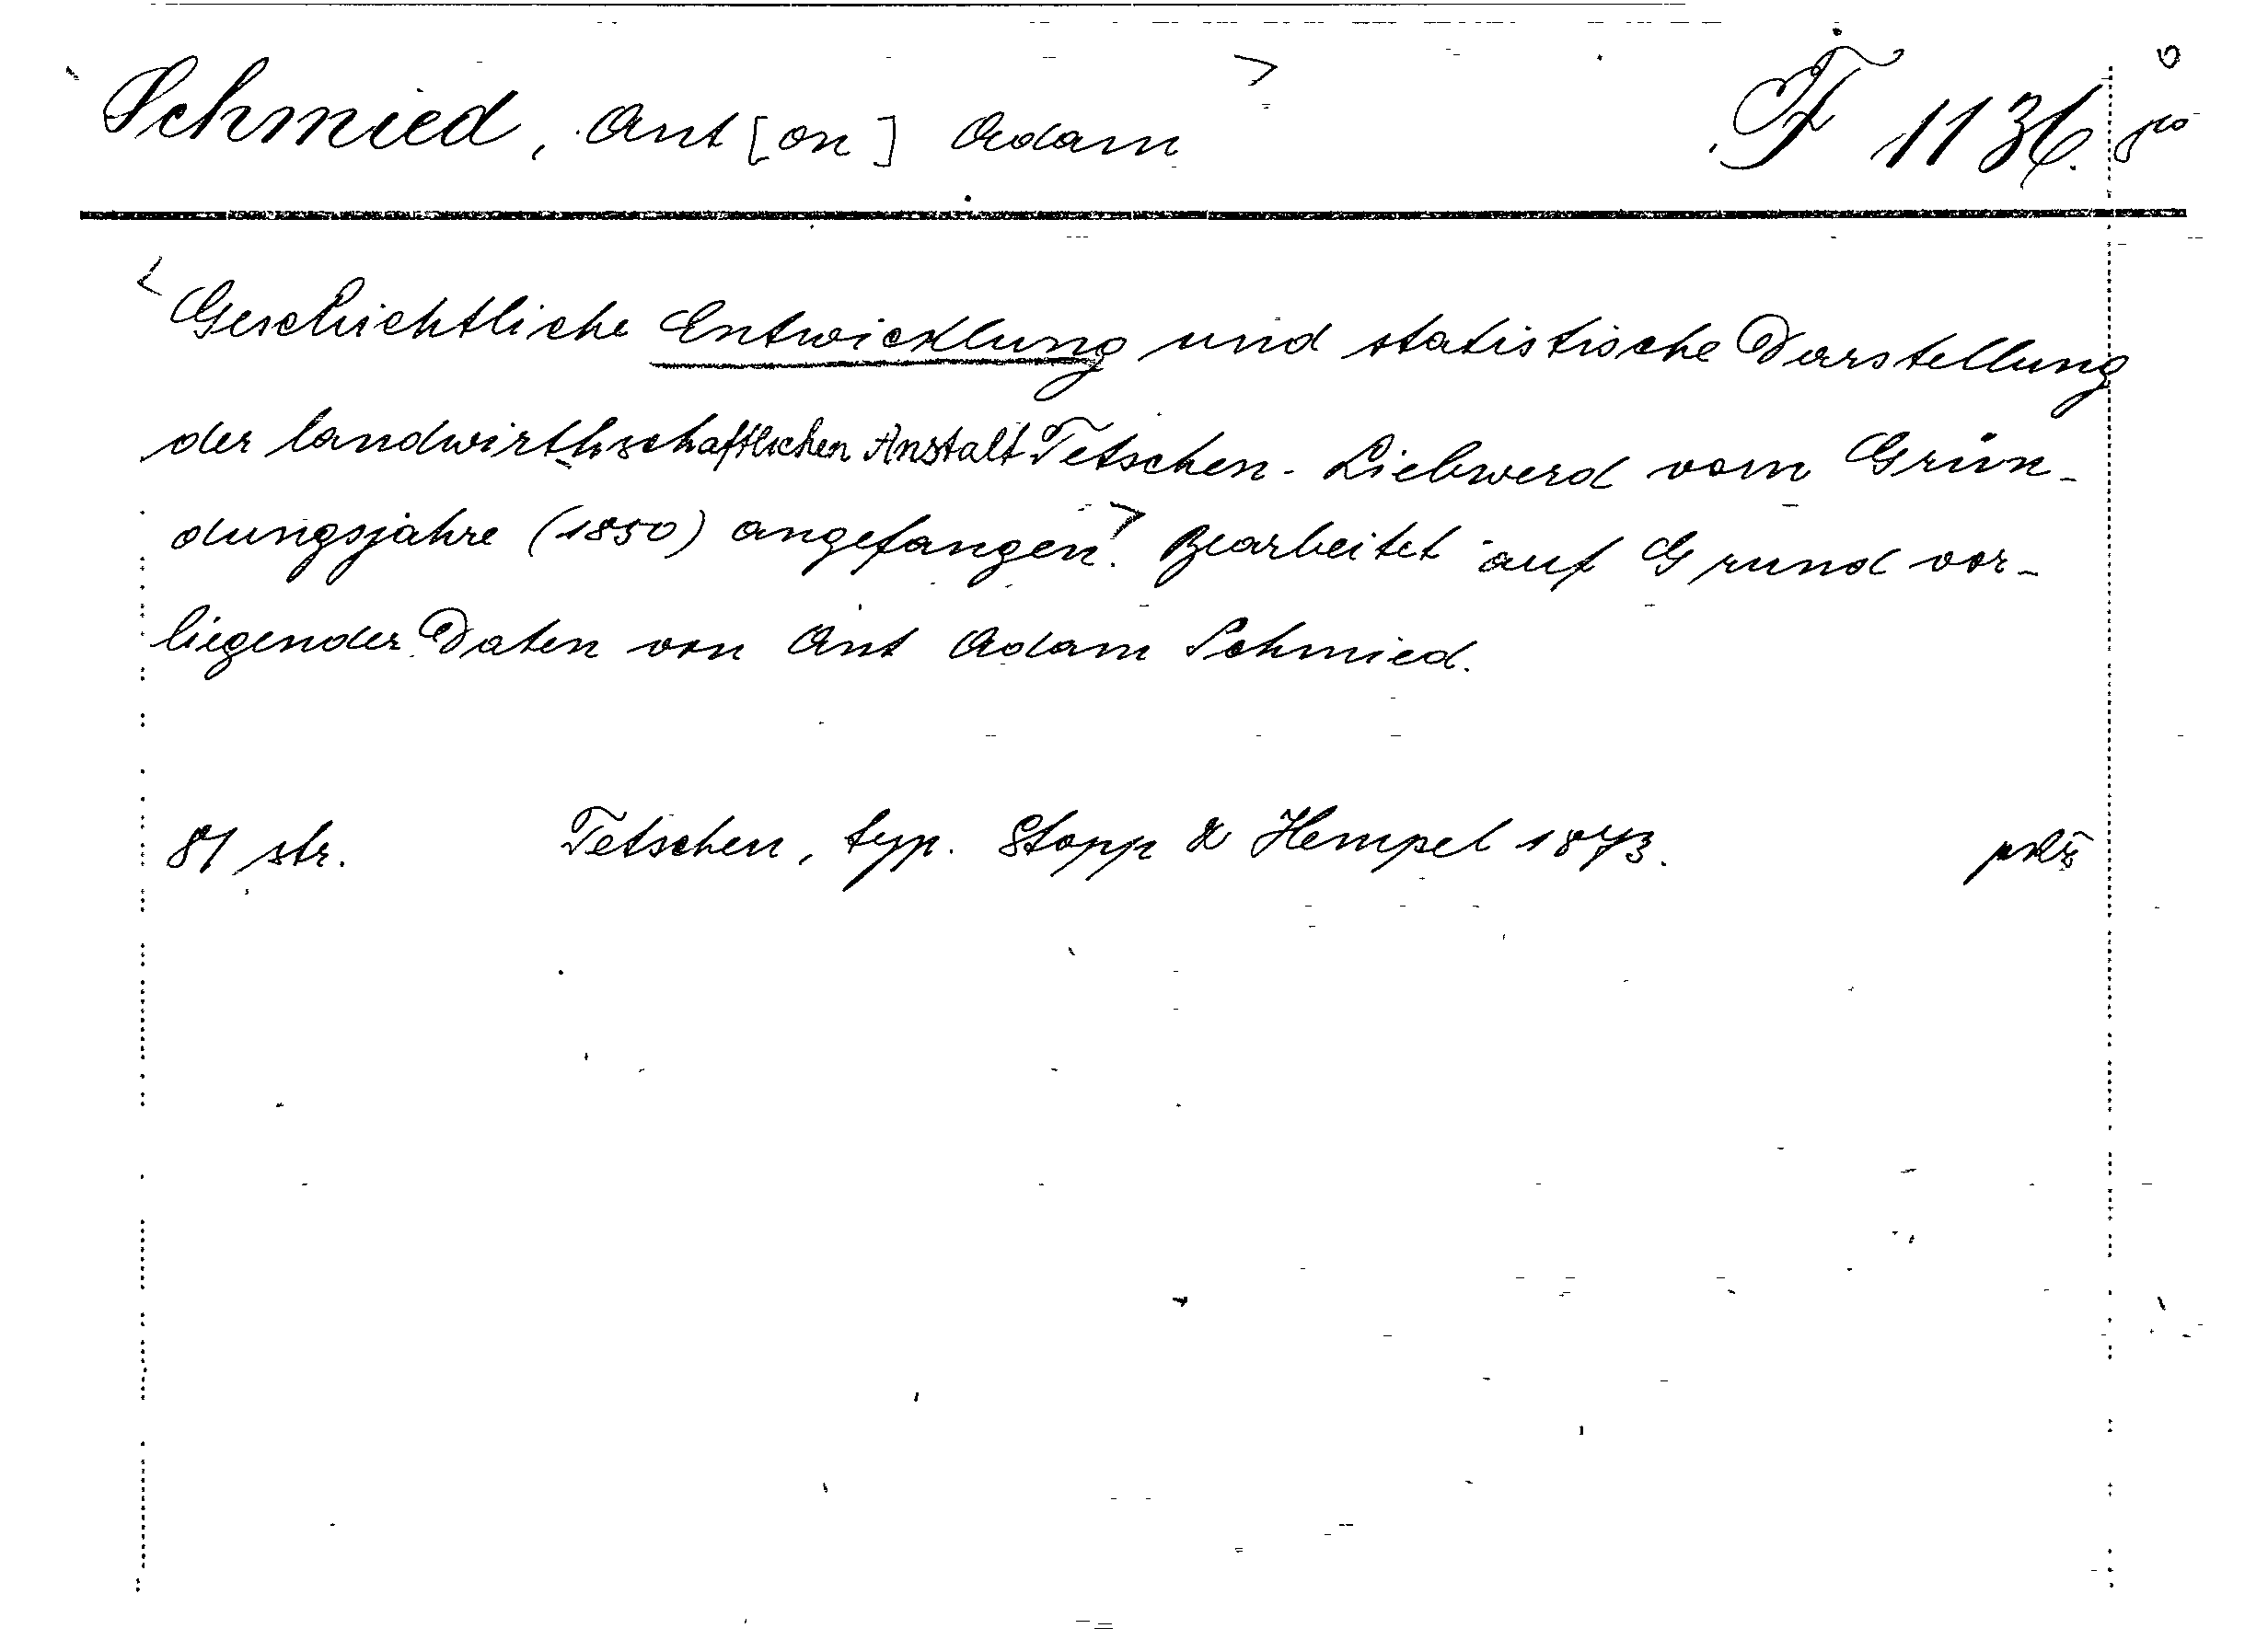 Schmied, Ant [on] Adam F 1136.
Geschichtliche Entwicklung und statistische Darstellung
der landwirthschaftlichen Anstalt Tetschen - Liebwerd vom Grün-
dungsjahre (1850) angefangen. Bearbeitet auf Grund vor-
liegender Daten von Ant Adam Schmied.
81 str. Tetschen, typ. Stopp & Hempel 1873.